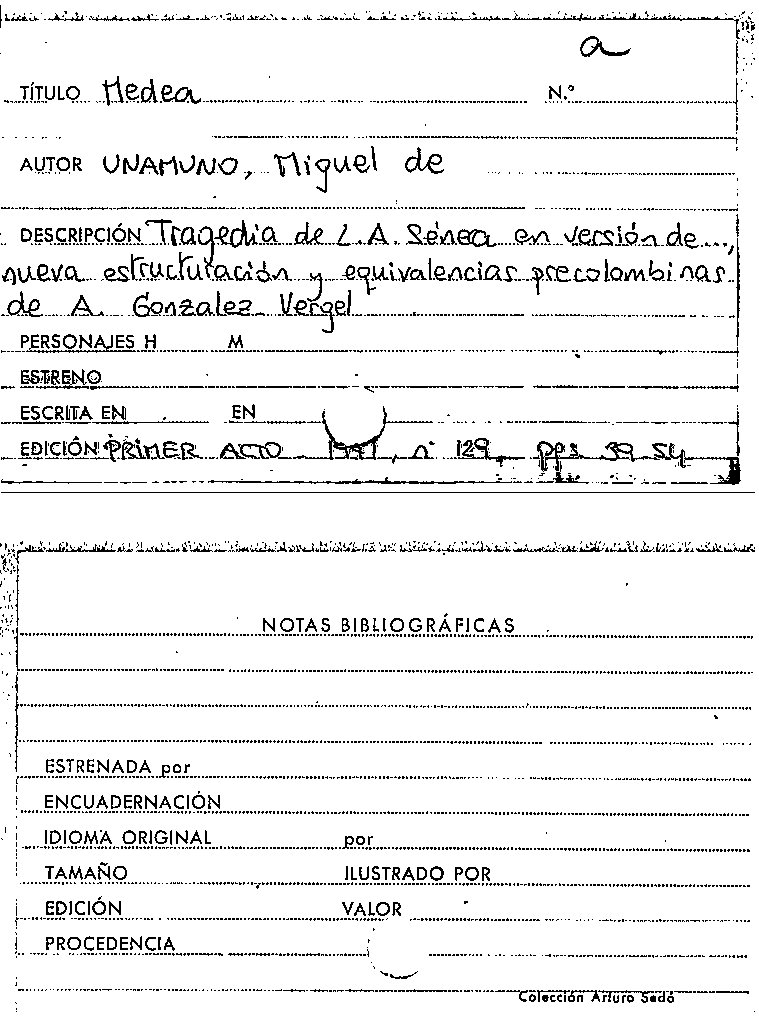 a
TÍTULO Medea N.º
AUTOR UNAMUNO, Miguel de
DESCRIPCIÓN Tragedia de L.A. Séneca en versión de...,
nueva estructuración y equivalencias precolombinas
de A. Gonzalez Vergel
PERSONAJES H M
ESTRENO
ESCRITA EN EN
EDICIÓN PRIMER ACTO - , nº 129, pps 39-54
NOTAS BIBLIOGRÁFICAS
ESTRENADA por
ENCUADERNACIÓN
IDIOMA ORIGINAL por
TAMAÑO ILUSTRADO POR
EDICIÓN VALOR
PROCEDENCIA
Colección Arturo Sedó